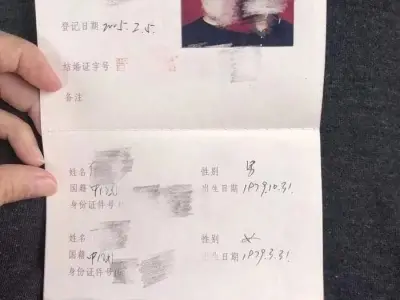 登记日期 2005.2.5.
结婚证字号
备注
姓名 性别 男
国籍 中国 出生日期 1979.10.31.
身份证件号
姓名 性别 女
国籍 中国 出生日期 1979.3.31.
身份证件号